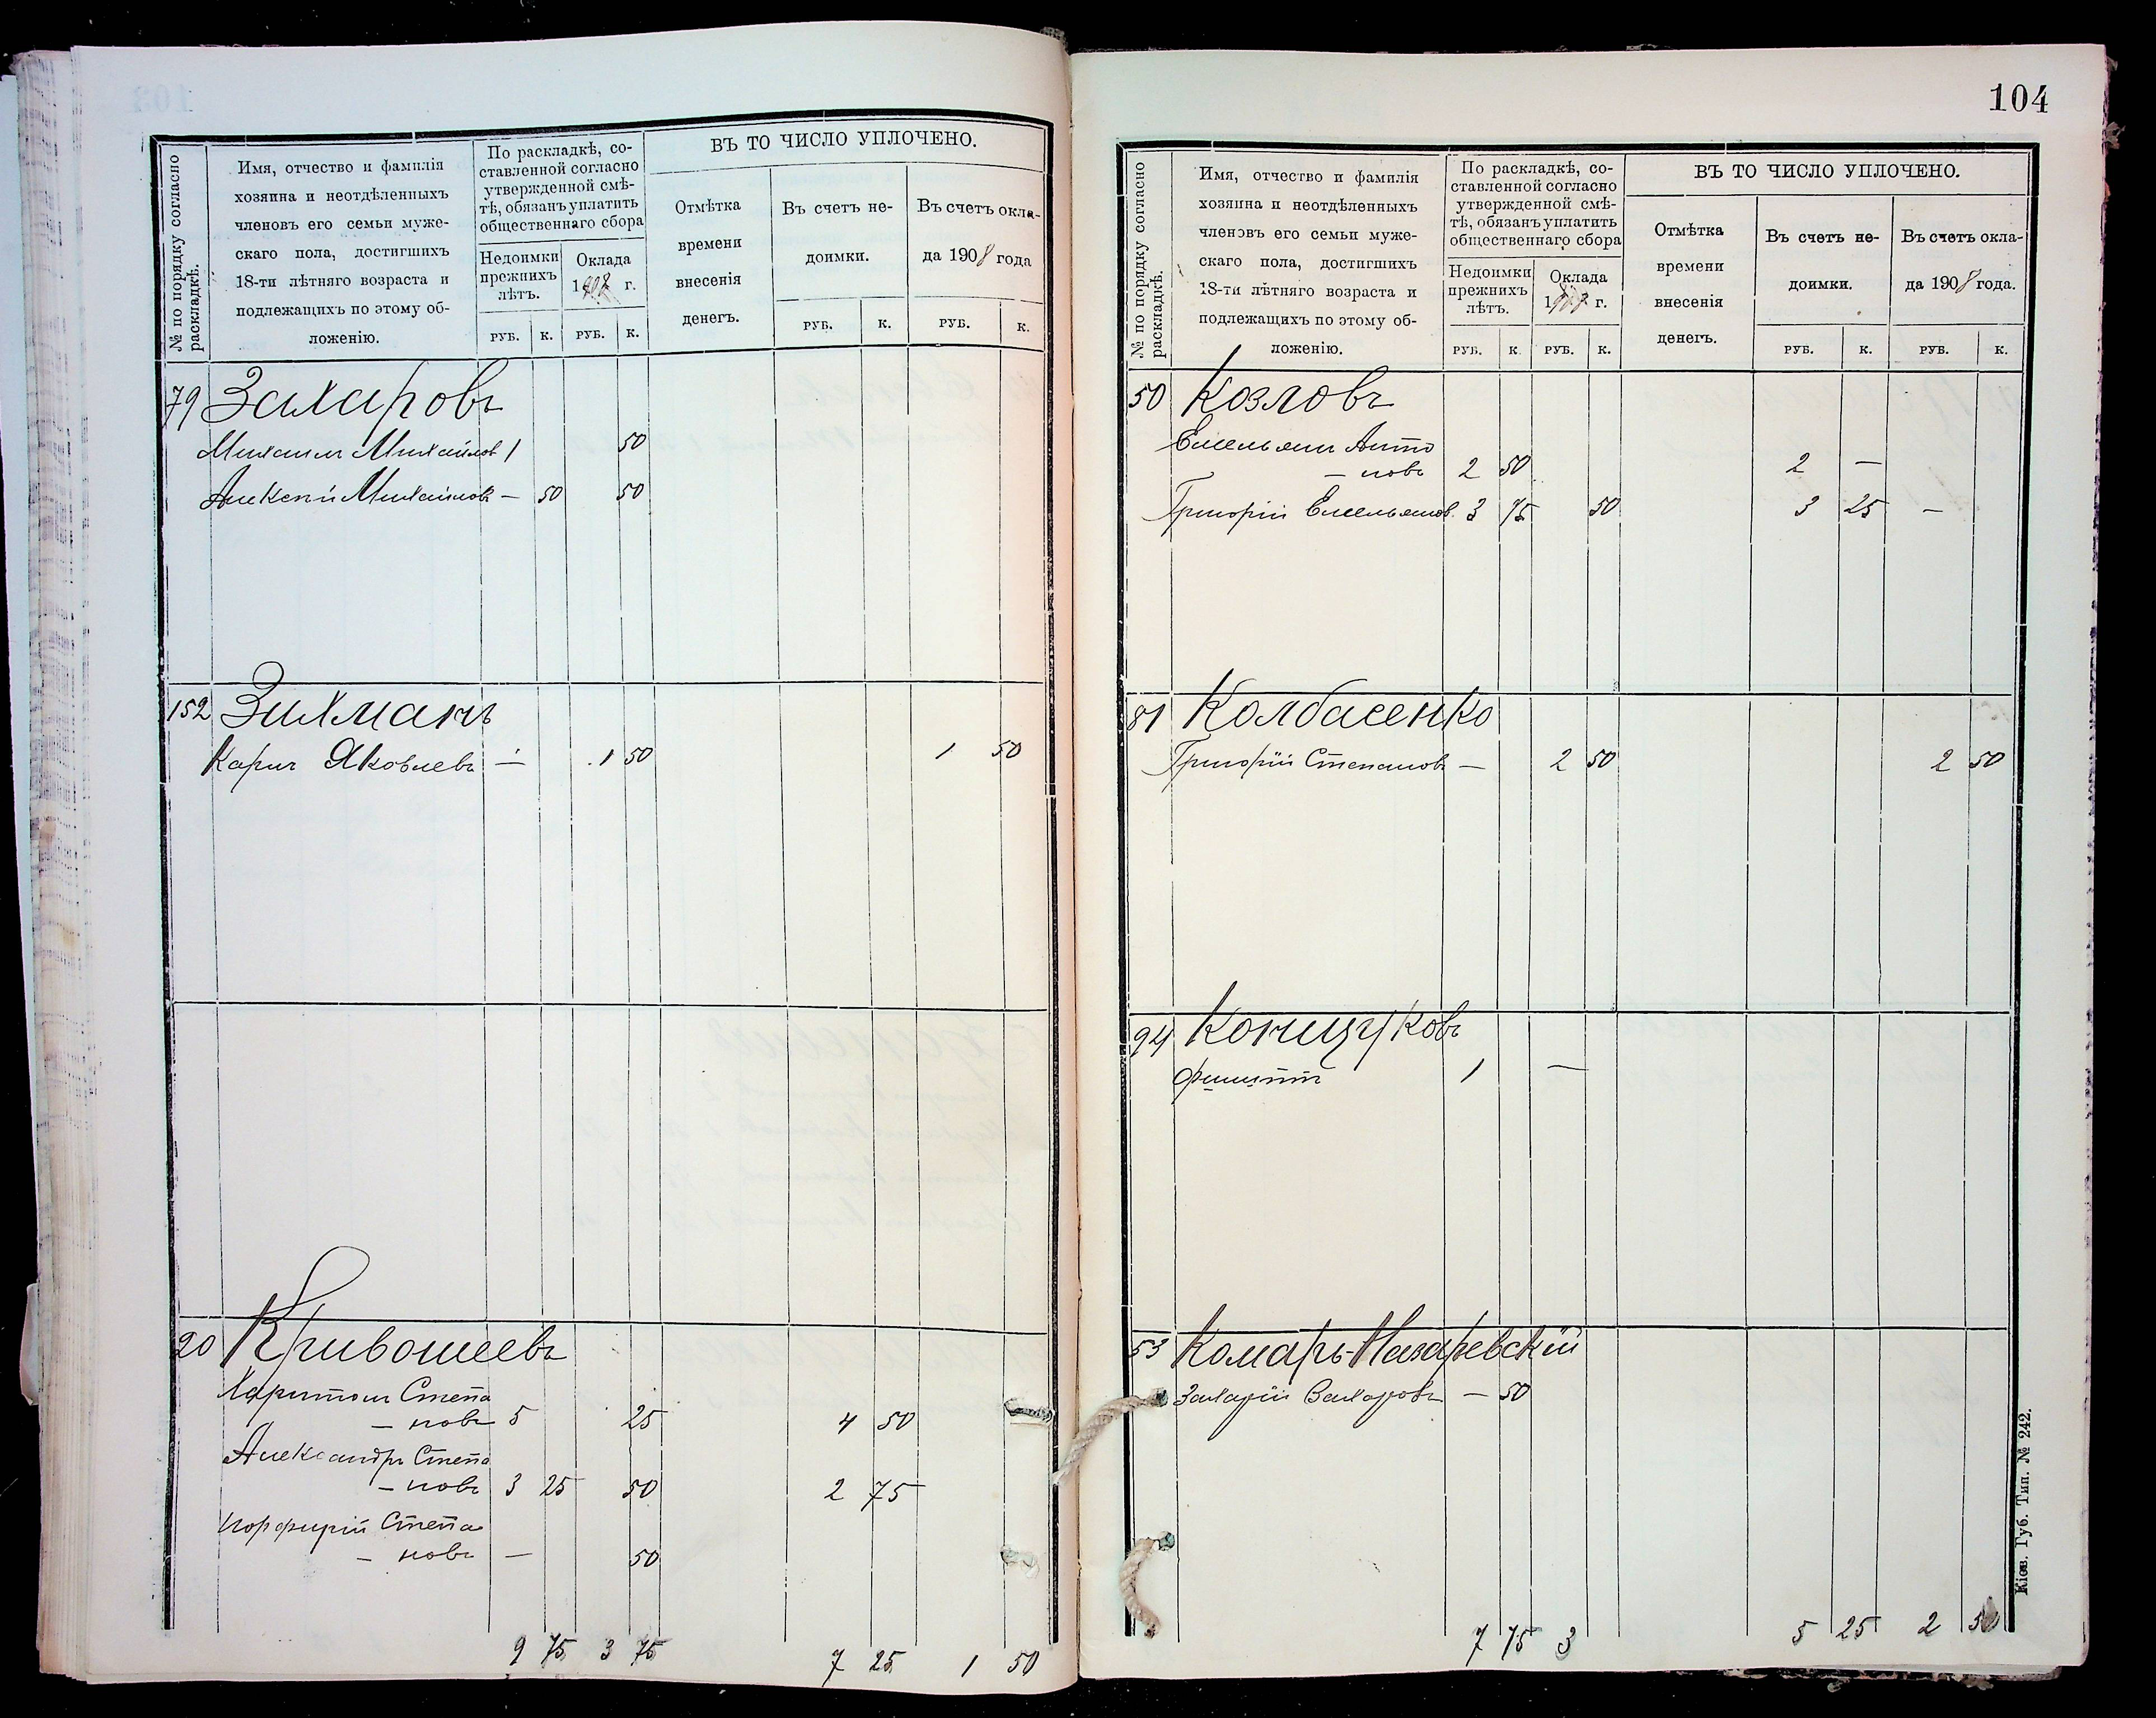 № по порядку согласно раскладкѣ.
Имя, отчество и фамилія
хозяина и неотдѣленныхъ
членовъ его семьи муже-
скаго пола, достигшихъ
18-ти лѣтняго возраста и
подлежащихъ по этому об-
ложенію.
По раскладкѣ, со-
ставленной согласно
утвержденной смѣ-
тѣ, обязанъ уплатить
общественнаго сбора
Недоимки
прежнихъ
лѣтъ.
Оклада
г.
РУБ. К. РУБ. К.
ВЪ ТО ЧИСЛО УПЛОЧЕНО.
Отмѣтка
времени
внесенія
денегъ.
Въ счетъ не-
доимки.
РУБ. К.
Въ счетъ окла-
да 1908 года
РУБ. К.
79 Захаровъ
Михаилъ Михайлов 1 50
Алексѣй Михайловъ — 50 50
152 Зихманъ
Карлъ Яковлевъ — 1 50 1 50
20 Кривошеевъ
Харитонъ Степа
— новъ 5 25 4 50
Александръ Степа
— новъ 3 25 50 2 75
Порфирій Степа
— новъ — 50
9 75 3 75 7 25 1 50
104
№ по порядку согласно раскладкѣ.
Имя, отчество и фамилія
хозяина и неотдѣленныхъ
членовъ его семьи муже-
скаго пола, достигшихъ
18-ти лѣтняго возраста и
подлежащихъ по этому об-
ложенію.
По раскладкѣ, со-
ставленной согласно
утвержденной смѣ-
тѣ, обязанъ уплатить
общественнаго сбора
Недоимки
прежнихъ
лѣтъ.
Оклада
г.
РУБ. К. РУБ. К.
ВЪ ТО ЧИСЛО УПЛОЧЕНО.
Отмѣтка
времени
внесенія
денегъ.
Въ счетъ не-
доимки.
РУБ. К.
Въ счетъ окла-
да 1908 года.
РУБ. К.
50 Козловъ
Емельянъ Анто
— новъ 2 50 2 —
Григорій Емельянов. 3 75 50 3 25 —
81 Колбасенко
Григорій Степановъ — 2 50 2 50
94 Конищуковъ
Филиппъ 1 —
53 Комаръ-Назаревскій
Захарій Захаровъ — 50
7 75 3 5 25 2 50
Кіев. Губ. Тип. № 242.